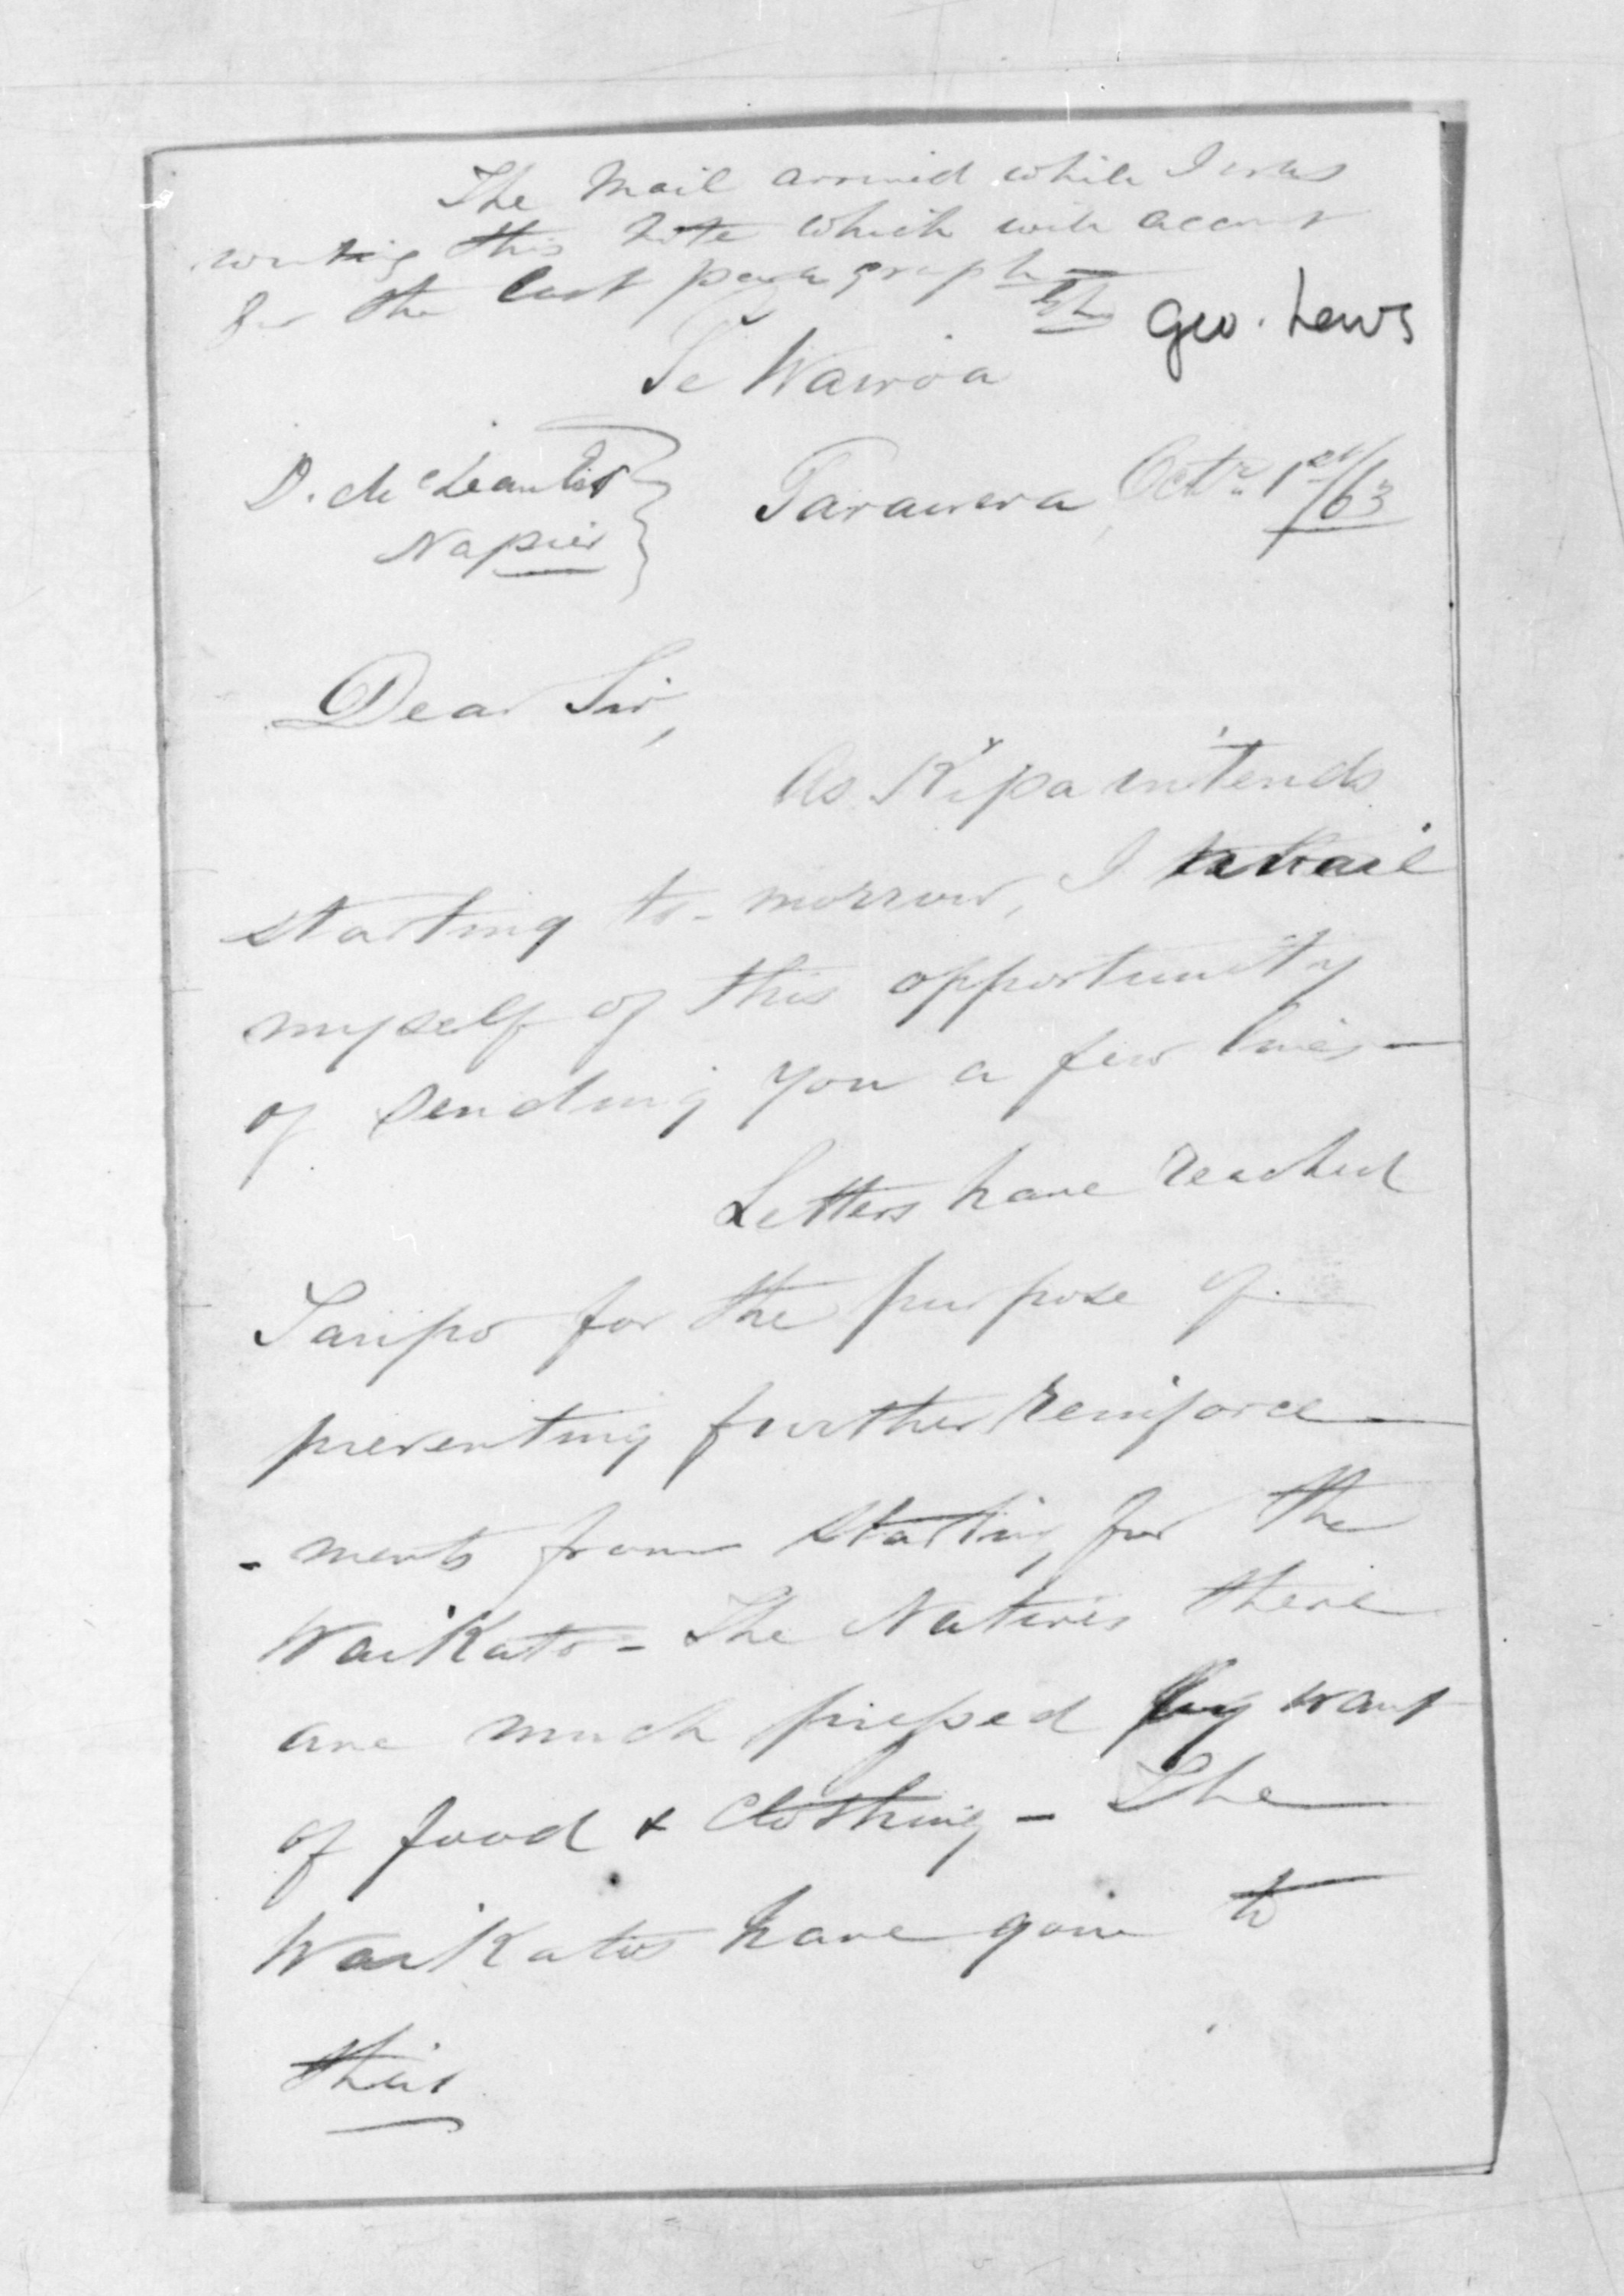 The Mail arrived while I was
writing this note which will account
for the last paragraph
Geo. Laws
Te Wairoa
D. McLean Esqr
Napier
Tarawera Octr. 1st/63
Dear Sir,
As Kipa intends
starting to-morrow, I avail
myself of this opportunity
of sending you a few lines—
Letters have reached
Taupo for the purpose of
preventing further reinforce-
-ments from starting for the
Waikato - The Natives there
are much pressed by want
of food & clothing - The
Waikatos have gone to
their